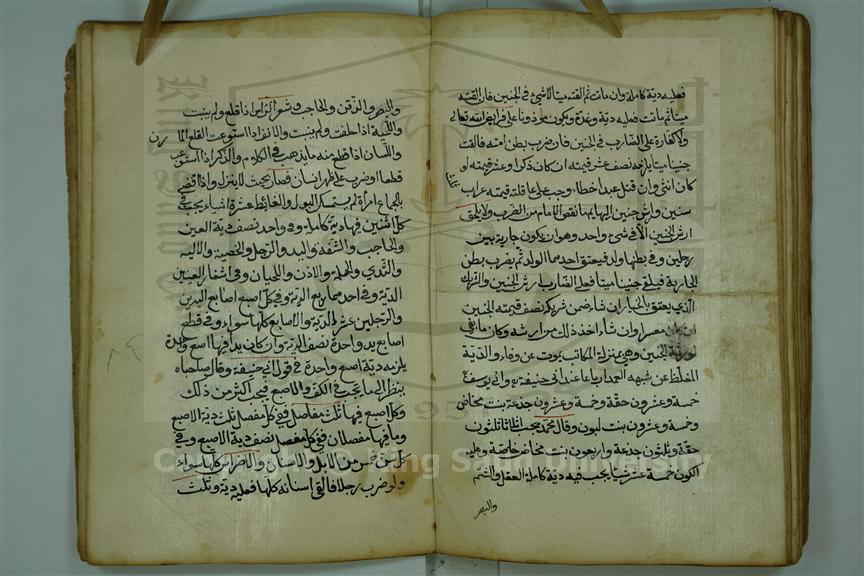 فعليه دية كاملة وان ماتت ثم القته ميتا لا شيء في الجنين فان القته
ميتا ثم ماتت فعليه دية وغرة ويكون موروثا على فرايض الله تعالى
ولا كفارة على الضارب في الجنين فان ضرب بطن امته فالقت
جنينا ميتا يلزمه نصف عشر قيمته ان كان ذكرا وعشر قيمته لو
كان انثى وان قتل عبدا خطاء وجب على عاقلته قيمته
سنين وارش جنين البهايم ما نقص الام من الضرب ولا يلحق
ارش الجنين الا في شيء واحد وهو ان يكون جارية بين
رجلين وفي بطنها ولد فيعتق احدهما الولد ثم يضرب بطن
الجارية فيلقي جنينا ميتا فعلى الضارب ارش الجنين والشريك
الذي يعتق بالخيار ان شا ضمن شريكه نصف قيمته الجنين
ان كان معسرا وان شا اخذ ذلك من ارشه وكان ما بقي
لورثة الجنين وهي بمنزلة المكاتب يموت عن وفاء والدية
المغلظ عن شبهه العمد ارباعا عند ابي حنيفة وابي يوسف
خمسة وعشرون حقة وخمسة وعشرون جذعة بنت مخاض
وخمسة وعشرون بنت لبون وقال محمد يجب اثلاثا ثلثون
حقة وثلثون جذعة واربعون بنت مخاض
خمسة عشر شيا يجب فيه دية كاملة العقل والشم
والبصر
والبصر والذقن والحاجب وشعر الراس اذا قلع ولم ينبت
واللحية اذا حلقت ولم ينبت والانف اذا استوعت القلع المارن
واللسان اذا قطع منه ما يذهب في الكلام والذكر اذا استوعب
قطعا او ضرب على ظهر انسان فصار بحيث لا ينزل واذا افضى
بالجماع امراة لم يستمسك البول والغائط عشرة اشياء يجب في
كل اثنين فيها دية كاملة وفي واحد نصف دية العين
والحاجب والشفه واليد والرجل والخصية والاليه
والثدي والحلمة والاذن واللحيان وفي اشفار العينين
الدية وفي احدهما ربع الدية وفي كل اصبع اصابع اليدين
والرجلين عشر الدية والاصابع كلها سواء وفي قطع
اصابع يد واحدة نصف الدية وان كان يد فيها اصبع واحدة
يلزمه دية اصبع واحدة في قول ابي حنيفة وقال صاحباه
ينظر الى ما يجب في الكف والاصبع فيجب اكثر من ذلك
وكل اصبع فيها ثلث مفاصل ففي كل مفصل ثلث دية الاصبع
وما فيها مفصلان ففي كل مفصل نصف دية الاصبع وفي
كل سن خمس من الابل والاسنان والاضراس كلها سواء
ولو ضرب رجلا فالقى اسنانه كلها فعليه دية وثلث